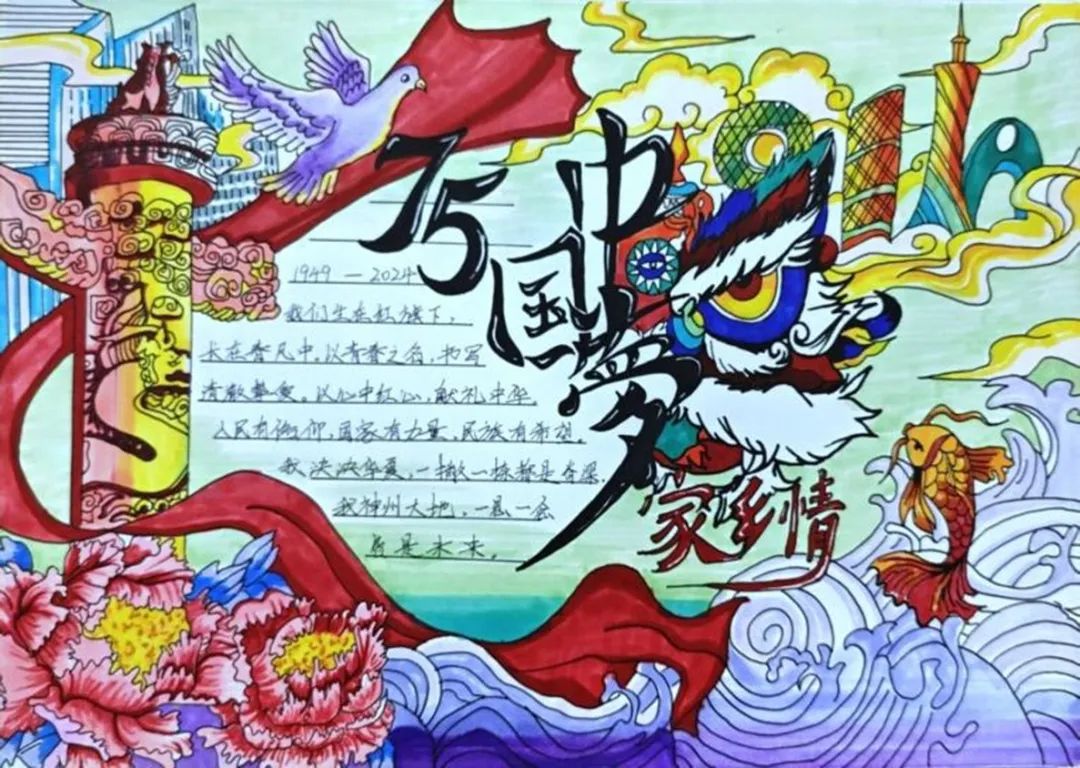 75
中国梦
家乡情
1949—2024
我们生在红旗下，
长在春风中，以青春之名，书写
青散挚爱。以心中红心，献礼中华。
人民有信仰，国家有力量，民族有希望，
我泱泱华夏，一撇一捺都是脊梁，
我神州大地，一思一念
皆是未来。